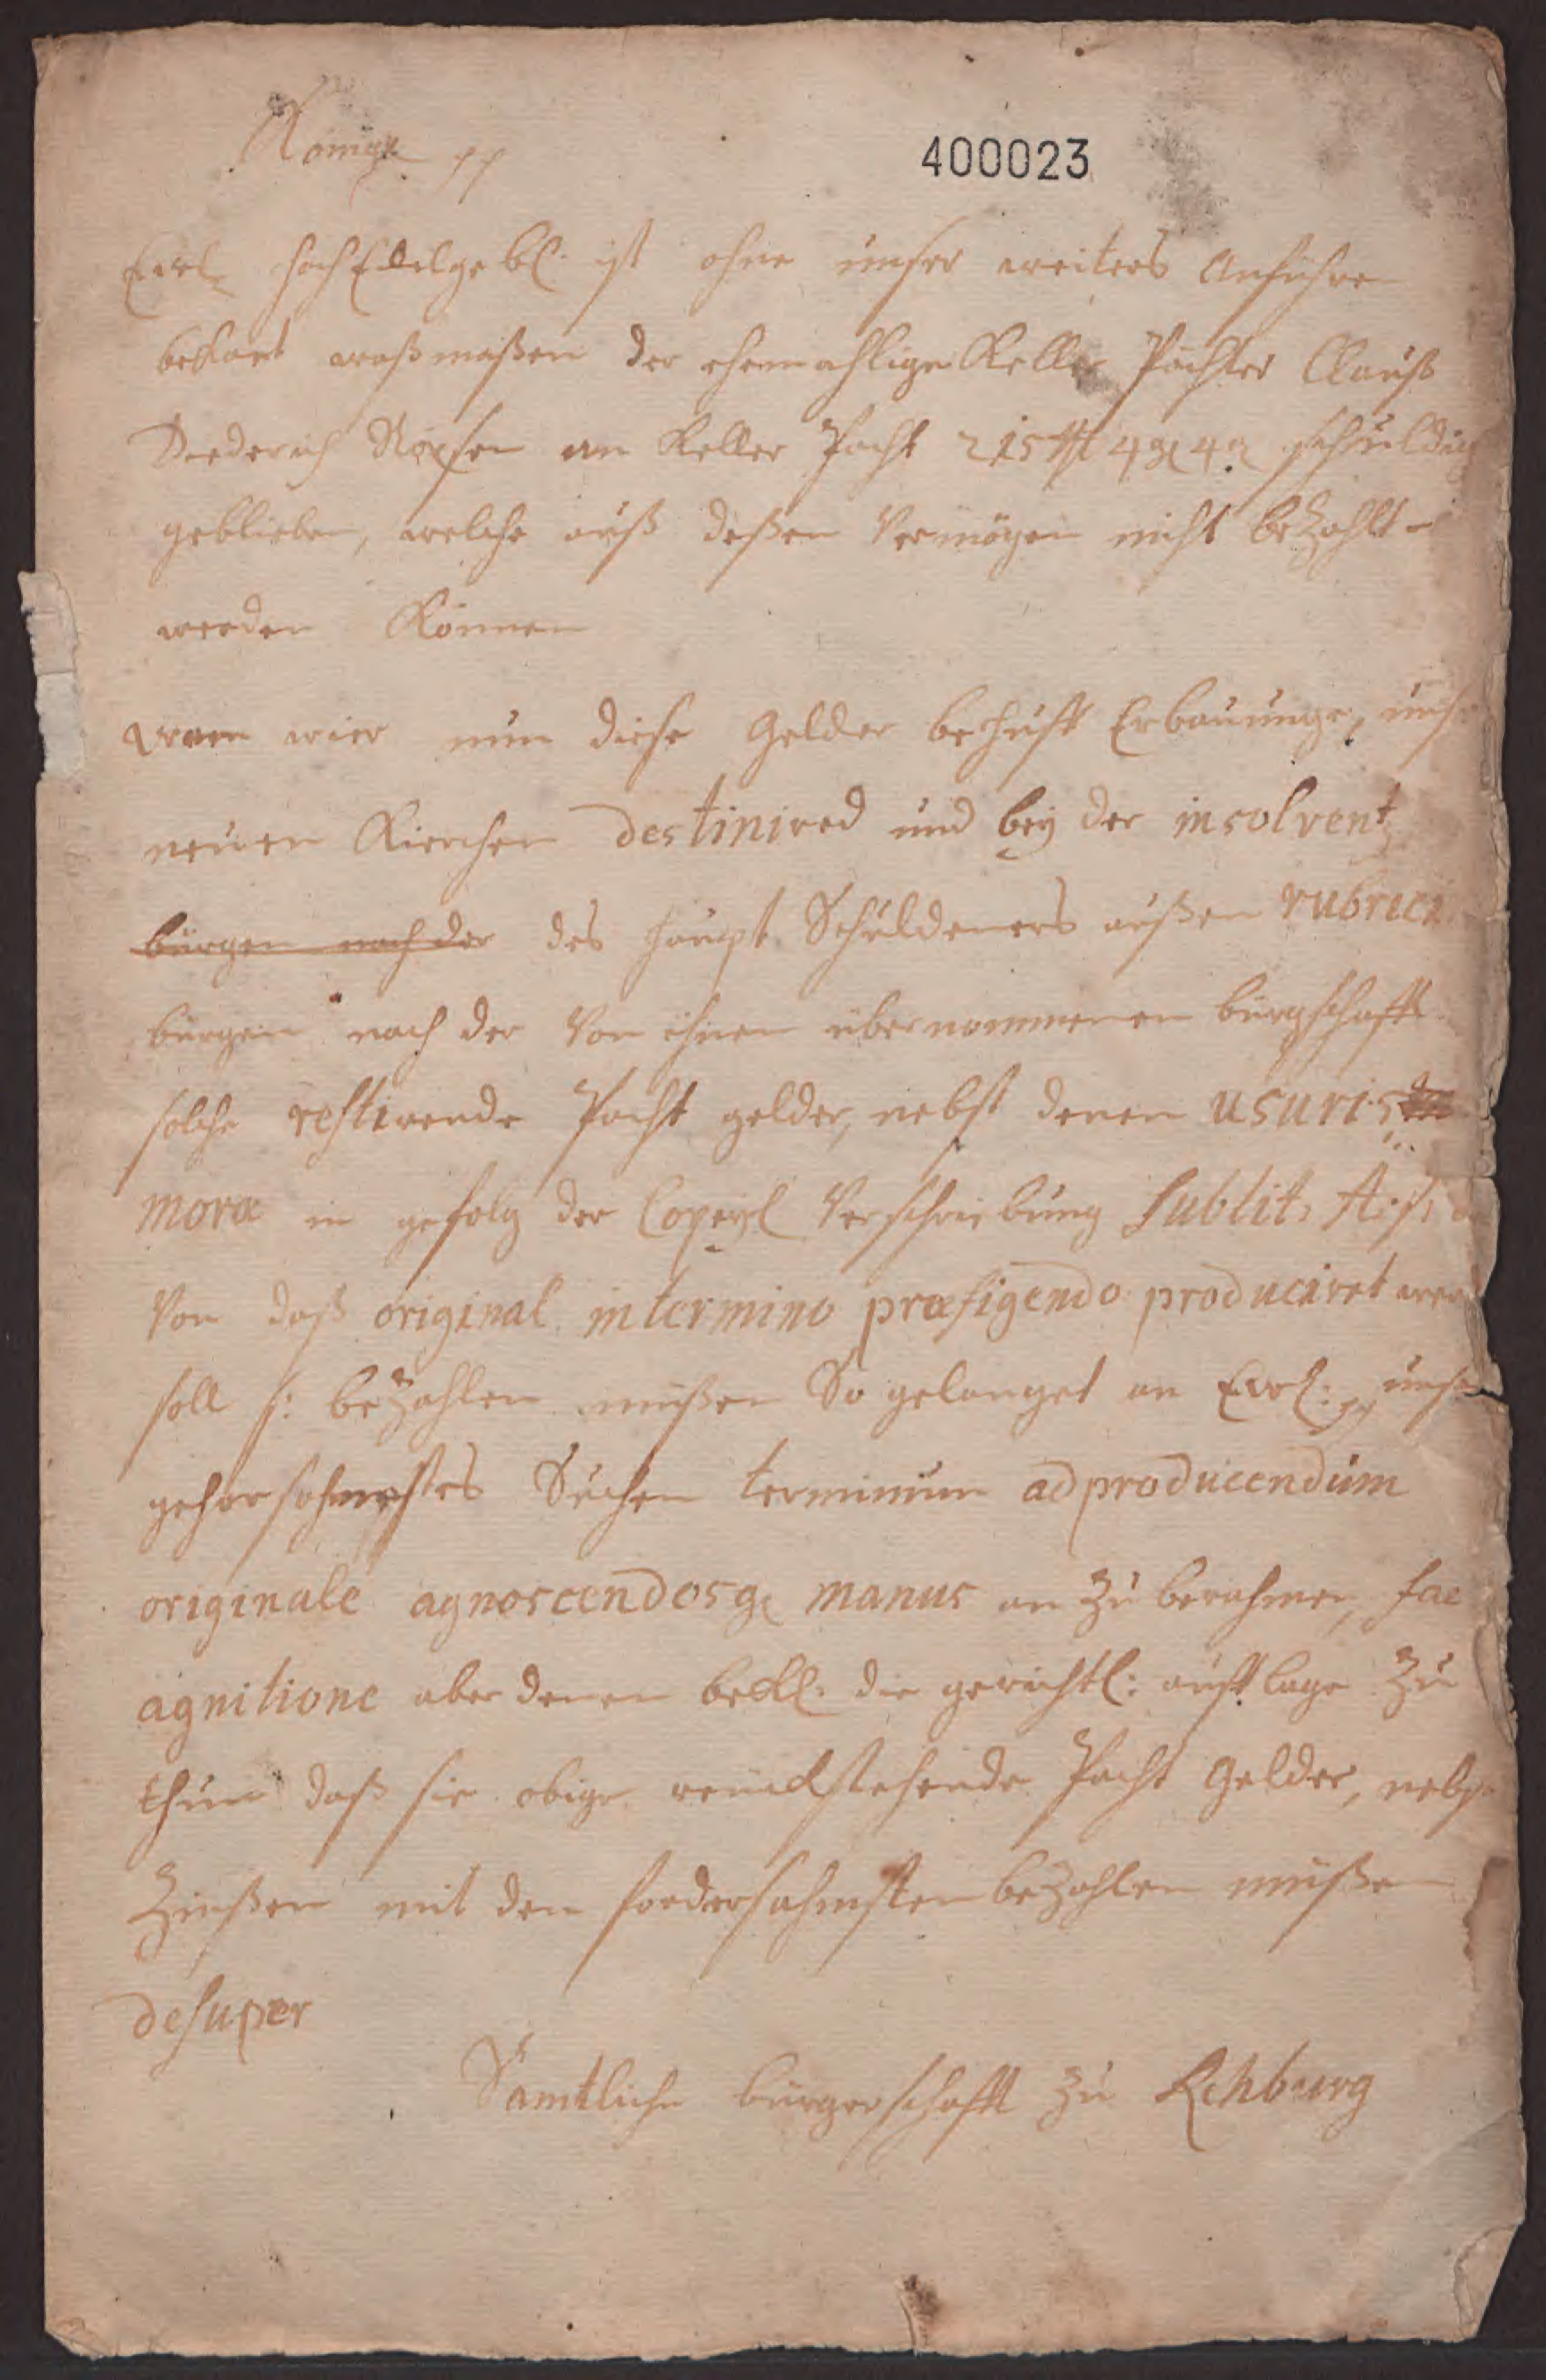 Königl pp
400023
Ewl HochEdelgebl. ist ohne unser weiters Anführen
bekant waßmaßen der ehemahlige Keller Pächter Clauß
Diederich an Keller Pacht 215 4 4 schuldig
geblieben, welche auß deßen Vermögen nicht bezahlt
werden Können
Wann wier nun diese Gelder behuff Erbauunge, uns
neuen Kirchen destinired und bey der insolvent
bürgen nach der des haupt Schuldeners außen rubrici
bürgen nach der Von ihnen übernommenen bürgschafft
solche restirende Pacht gelder, nebst denen usuris
moræ in gefolg der Copeyl Verschreibung sub lit. A:
Von daß original in termino præfigendo produciret wer
soll /: bezahlen müßen So gelanget an Ewl: pp uns
gehorsahmstes Suchen terminum ad producendum
originale agnoscendosq manus an zu berahmen, fac
agnitione aber denen bekl. die gerichtl: aufflage zu
thun daß sie obige rückstehende Pacht Gelder, nebst
Zinßen mit dem fordersahmsten bezahlen müßen
desuper
Sämtliche bürgerschafft zu Rehburg